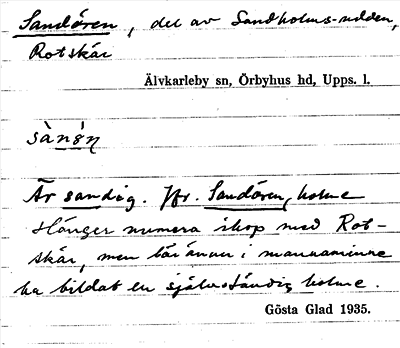 Sandören, del av Sandholms-udden,
Rotskär
Älvkarleby sn, Örbyhus hd, Upps. l.
sànǿn
Är sandig. Jfr. Sandören, holme
Hänger numera ihop med Rot-
skär, men lär ännu i mannaminne
ha bildat en självständig holme.
Gösta Glad 1935.